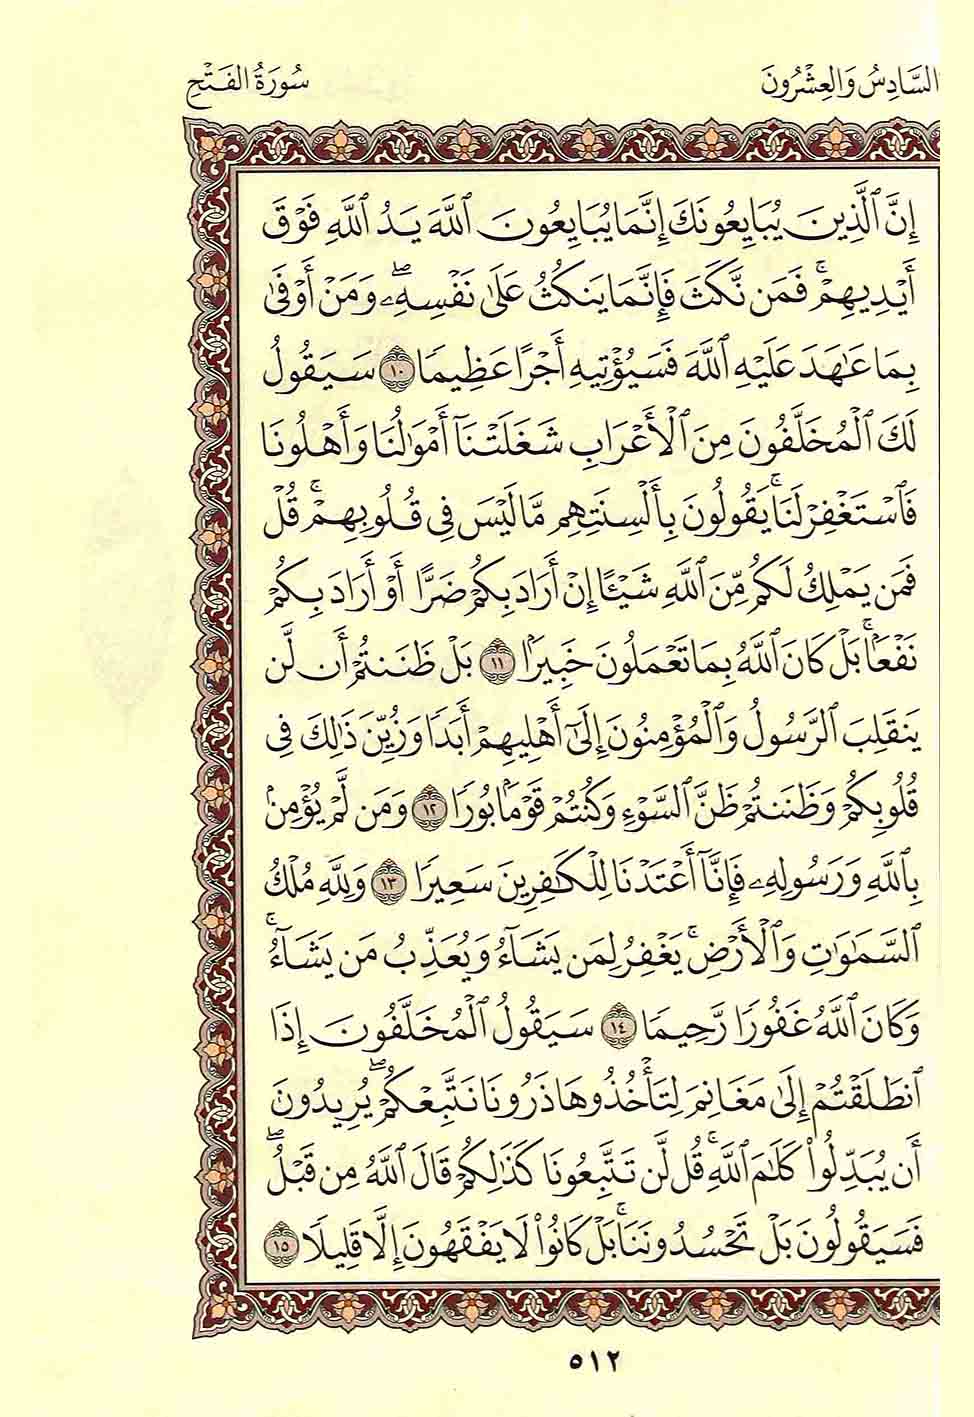 السَّادِسُ وَالعِشْرُونَ
سُورَةُ الفَتْحِ
إِنَّ ٱلَّذِينَ يُبَايِعُونَكَ إِنَّمَا يُبَايِعُونَ ٱللَّهَ يَدُ ٱللَّهِ فَوْقَ
أَيْدِيهِمْۚ فَمَن نَّكَثَ فَإِنَّمَا يَنكُثُ عَلَىٰ نَفْسِهِۦۖ وَمَنْ أَوْفَىٰ
بِمَا عَٰهَدَ عَلَيْهِ ٱللَّهَ فَسَيُؤْتِيهِ أَجْرًا عَظِيمًا ١٠ سَيَقُولُ
لَكَ ٱلْمُخَلَّفُونَ مِنَ ٱلْأَعْرَابِ شَغَلَتْنَآ أَمْوَٰلُنَا وَأَهْلُونَا
فَٱسْتَغْفِرْ لَنَاۚ يَقُولُونَ بِأَلْسِنَتِهِم مَّا لَيْسَ فِى قُلُوبِهِمْۚ قُلْ
فَمَن يَمْلِكُ لَكُم مِّنَ ٱللَّهِ شَيْـًٔا إِنْ أَرَادَ بِكُمْ ضَرًّا أَوْ أَرَادَ بِكُمْ
نَفْعًۢاۚ بَلْ كَانَ ٱللَّهُ بِمَا تَعْمَلُونَ خَبِيرًۢا ١١ بَلْ ظَنَنتُمْ أَن لَّن
يَنقَلِبَ ٱلرَّسُولُ وَٱلْمُؤْمِنُونَ إِلَىٰٓ أَهْلِيهِمْ أَبَدًا وَزُيِّنَ ذَٰلِكَ فِى
قُلُوبِكُمْ وَظَنَنتُمْ ظَنَّ ٱلسَّوْءِ وَكُنتُمْ قَوْمًۢا بُورًا ١٢ وَمَن لَّمْ يُؤْمِنۢ
بِٱللَّهِ وَرَسُولِهِۦ فَإِنَّآ أَعْتَدْنَا لِلْكَٰفِرِينَ سَعِيرًا ١٣ وَلِلَّهِ مُلْكُ
ٱلسَّمَٰوَٰتِ وَٱلْأَرْضِۚ يَغْفِرُ لِمَن يَشَآءُ وَيُعَذِّبُ مَن يَشَآءُۚ
وَكَانَ ٱللَّهُ غَفُورًا رَّحِيمًا ١٤ سَيَقُولُ ٱلْمُخَلَّفُونَ إِذَا
ٱنطَلَقْتُمْ إِلَىٰ مَغَانِمَ لِتَأْخُذُوهَا ذَرُونَا نَتَّبِعْكُمْۖ يُرِيدُونَ
أَن يُبَدِّلُوا۟ كَلَٰمَ ٱللَّهِۚ قُل لَّن تَتَّبِعُونَا كَذَٰلِكُمْ قَالَ ٱللَّهُ مِن قَبْلُۖ
فَسَيَقُولُونَ بَلْ تَحْسُدُونَنَاۚ بَلْ كَانُوا۟ لَا يَفْقَهُونَ إِلَّا قَلِيلًا ١٥
٥١٢